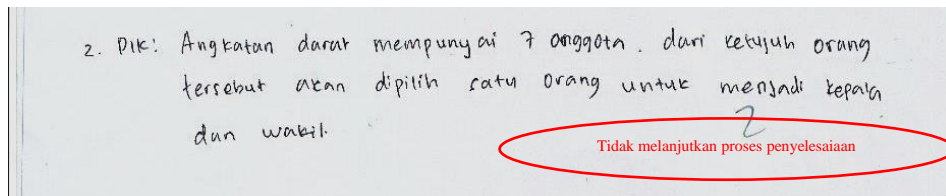 2. Dik: Angkatan darat mempunyai 7 anggota. dari ketujuh orang
tersebut akan dipilih satu orang untuk menjadi kepala
dan wakil.
2
Tidak melanjutkan proses penyelesaiaan